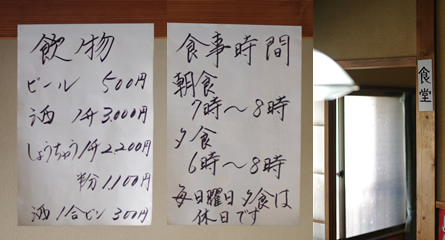 飲ノ物
ビール 500円
酒 1升 3,000円
しょうちゅう 1升 2,200円
半分 1,100円
酒 1合ビン 300円
食事時間
朝食
7時～8時
夕食
6時～8時
毎日曜日夕食は
休日です
食堂